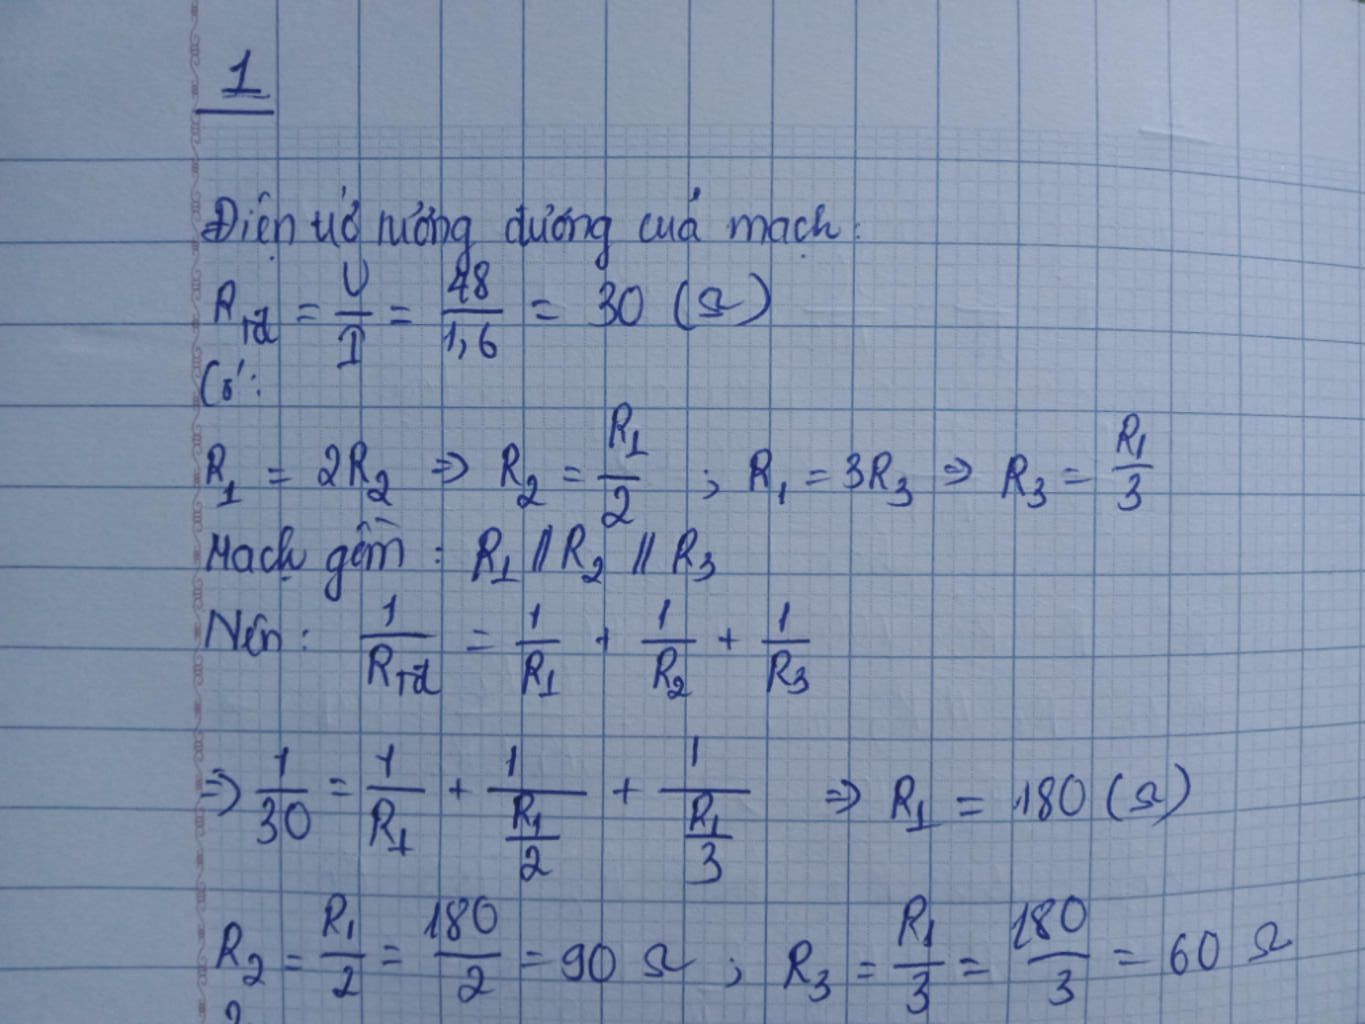 1
Điện trở tương đương của mạch:
Rtđ = U/I = 48/1,6 = 30 (Ω)
Có:
R1 = 2R2 => R2 = R1/2 ; R1 = 3R3 => R3 = R1/3
Mạch gồm : R1 // R2 // R3
Nên : 1/Rtđ = 1/R1 + 1/R2 + 1/R3
=> 1/30 = 1/R1 + 1/(R1/2) + 1/(R1/3) => R1 = 180 (Ω)
R2 = R1/2 = 180/2 = 90 Ω ; R3 = R1/3 = 180/3 = 60 Ω